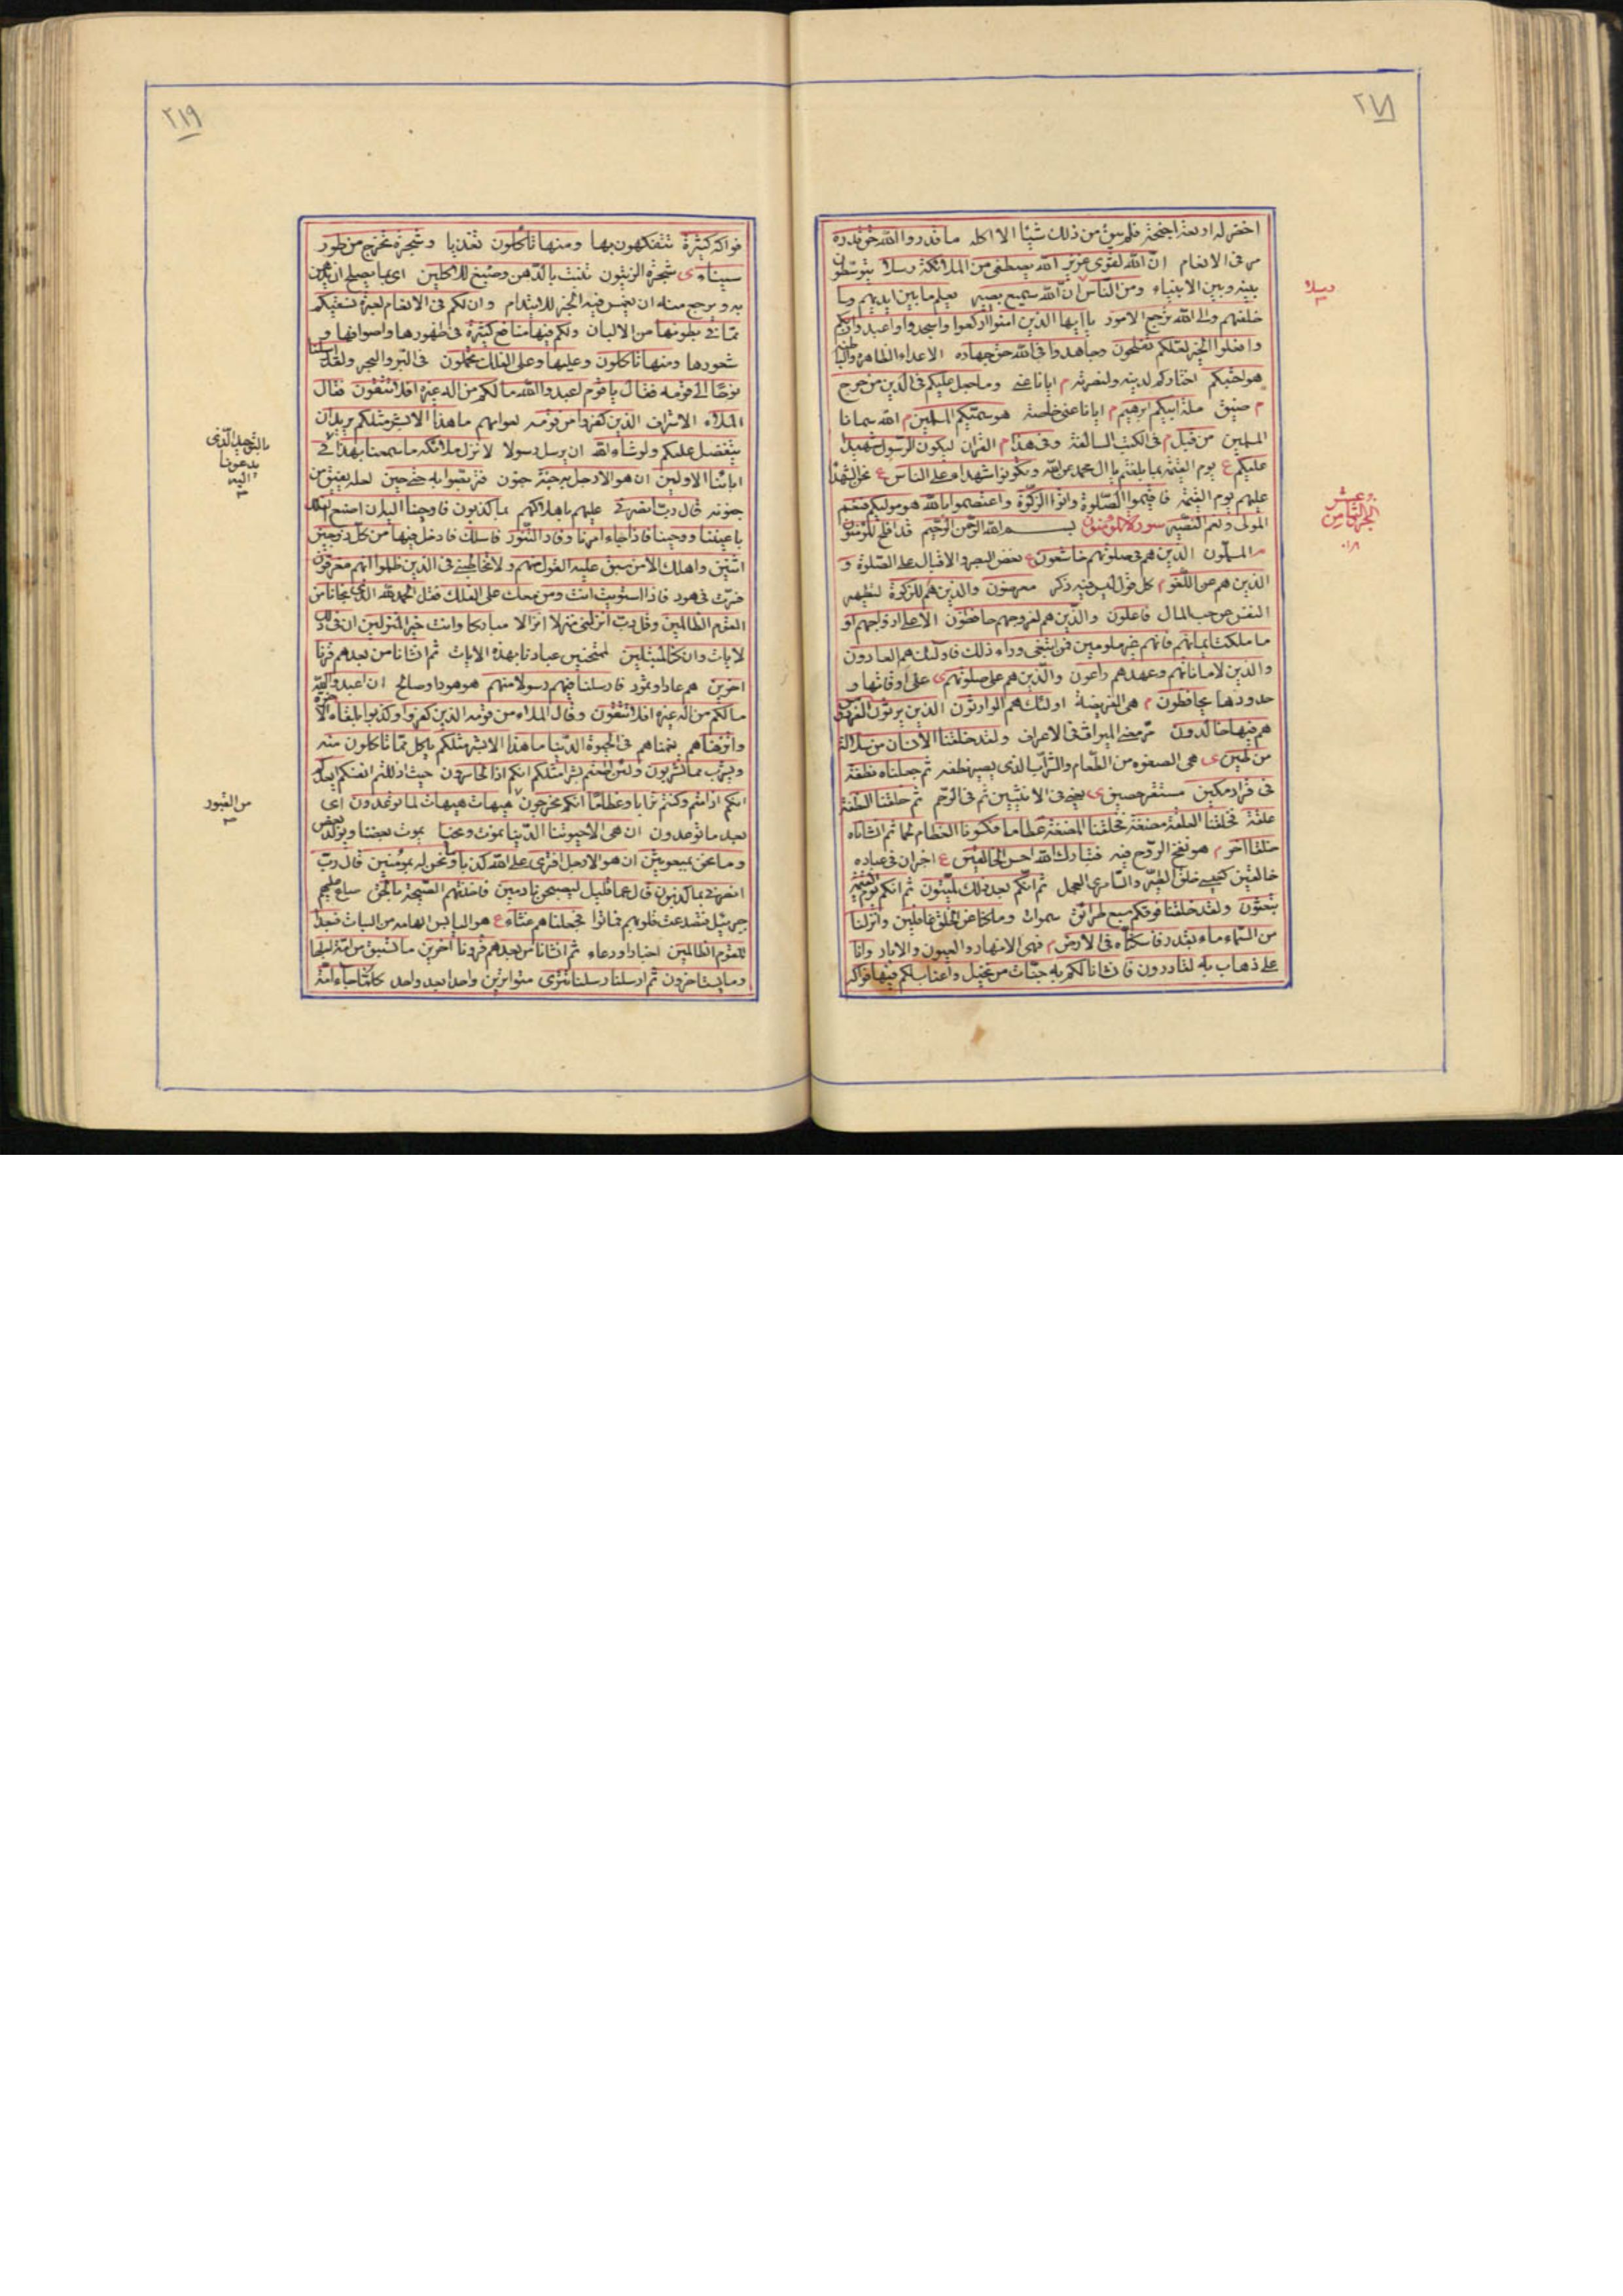 ٢١٨
اخضر له اربعة اجنحة فلم يبق من ذلك شيئا الا اكله ما قدروا الله حق قدره
مر فى الانعام ان الله لقوى عزيز الله يصطفى من الملائكة رسلا يتوسطون
بينه وبين الانبياء ومن الناس ان الله سميع بصير يعلم ما بين ايديهم وما
خلفهم والى الله ترجع الامور يا ايها الذين امنوا اركعوا واسجدوا واعبدوا ربكم
وافعلوا الخير لعلكم تفلحون وجاهدوا فى الله حق جهاده الاعداء الظاهرة والباطنة
هو اجتبيكم اختاركم لدينه ولنصرته م ايانا عنى وما جعل عليكم فى الدين من حرج
م ضيق ملة ابيكم ابرهيم م ايانا عنى خاصة هو سميكم المسلمين م الله سمانا
المسلمين من قبل م فى الكتب السالفة وفى هذا م القران ليكون الرسول شهيدا
عليكم ع يوم القيمة بما بلغتم يا ال محمد عن الله وتكونوا شهداء على الناس ع نحن الشهداء
عليهم يوم القيمة فاقيموا الصلوة واتوا الزكوة واعتصموا بالله هو موليكم فنعم
المولى ونعم النصير سورة المؤمنون بسم الله الرحمن الرحيم قد افلح المؤمنون
م المسلمون الذين هم فى صلوتهم خاشعون ع بغض البصر والاقبال على الصلوة و
الذين هم عن اللغو م كل قول ليس فيه ذكر معرضون والذين هم للزكوة لتطهير
النفس عن حب المال فاعلون والذين هم لفروجهم حافظون الا على ازواجهم او
ما ملكت ايمانهم فانهم غير ملومين فمن ابتغى وراء ذلك فاولئك هم العادون
والذين لاماناتهم وعهدهم راعون والذين هم على صلوتهم ى على اوقاتها و
حدودها يحافظون م هى الفريضة اولئك هم الوارثون الذين يرثون الفردوس
هم فيها خالدون مر معنى الميراث فى الاعراف ولقد خلقنا الانسان من سلالة
من طين ى هى الصفوه من الطعام والشراب الذى يصير نطفه ثم جعلناه نطفة
فى قرار مكين مستقر حصين ى يعنى فى الانثيين ثم فى الرحم ثم خلقنا النطفة
علقة فخلقنا العلقة مضغة فخلقنا المضغة عظاما فكسونا العظام لحما ثم انشاناه
خلقا اخر م هو نفخ الروح فيه فتبارك الله احسن الخالقين ع اخبر ان فى عباده
خالقين كعيسى خلق الطير والسامرى العجل ثم انكم بعد ذلك لميتون ثم انكم يوم القيمة
تبعثون ولقد خلقنا فوقكم سبع طرائق سموات وما كنا عن الخلق غافلين وانزلنا
من السماء ماء بقدر فاسكناه فى الارض م فهى الانهار والعيون والابار وانا
على ذهاب به لقادرون فانشانا لكم به جنات من نخيل واعناب لكم فيها فواكه
رسلا
الجزء الثامن
٠١٨
٢١٩
فواكه كثيرة تتفكهون بها ومنها تاكلون تغذيا وشجرة تخرج من طور
سيناء ى شجرة الزيتون تنبت بالدهن وصبغ للاكلين اى بما يصلح ان يدهن
به ويسرج منه ان يغمس فيه الخبز للايتدام وان لكم فى الانعام لعبرة نسقيكم
مما فى بطونها من الالبان ولكم فيها منافع كثيرة فى ظهورها واصوافها و
شعورها ومنها تاكلون وعليها وعلى الفلك تحملون فى البر والبحر ولقد ارسلنا
نوحا الى قومه فقال يا قوم اعبدوا الله ما لكم من اله غيره افلا تتقون فقال
الملاء الاشراف الذين كفروا من قومه لعوامهم ما هذا الا بشر مثلكم يريد ان
يتفضل عليكم ولو شاء الله ان يرسل رسولا لانزل ملائكة ما سمعنا بهذا فى
ابائنا الاولين ان هو الا رجل به جنة جنون فتربصوا به حتى حين لعله يفيق من
جنونه قال رب انصرنى عليهم باهلاكهم بما كذبون فاوحينا اليه ان اصنع الفلك
باعيننا ووحينا فاذا جاء امرنا وفار التنور فاسلك فادخل فيها من كل زوجين
اثنين واهلك الا من سبق عليه القول منهم ولا تخاطبنى فى الذين ظلموا انهم مغرقون
فسرت فى هود فاذا استويت انت ومن معك على الفلك فقل الحمد لله الذى نجانا من
القوم الظالمين وقل رب انزلنى منزلا انزالا مباركا وانت خير المنزلين ان فى ذلك
لايات وان كنا لمبتلين لممتحنين عبادنا بهذه الايات ثم انشانا من بعدهم قرنا
اخرين هم عاد او ثمود فارسلنا فيهم رسولا منهم هو هود او صالح ان اعبدوا الله
ما لكم من اله غيره افلا تتقون وقال الملاء من قومه الذين كفروا وكذبوا بلقاء الاخرة
واترفناهم نعمناهم فى الحيوة الدنيا ما هذا الا بشر مثلكم ياكل مما تاكلون منه
ويشرب مما تشربون ولئن اطعتم بشرا مثلكم انكم اذا لخاسرون حيث اذللتم انفسكم ايعدكم
انكم اذا متم وكنتم ترابا وعظاما انكم مخرجون هيهات هيهات لما توعدون اى
بعد ما توعدون ان هى الا حيوتنا الدنيا نموت ونحيا يموت بعضنا ويولد بعض
وما نحن بمبعوثين ان هو الا رجل افترى على الله كذبا وما نحن له بمؤمنين قال رب
انصرنى بما كذبون قال عما قليل ليصبحن نادمين فاخذتهم الصيحة بالحق صاح عليهم
جبرئيل فتصدعت قلوبهم فماتوا فجعلناهم غثاء ع هو اليابس الهامد من النبات فبعدا
للقوم الظالمين اخبار او دعاء ثم انشانا من بعدهم قرونا اخرين ما تسبق من امة اجلها
وما يستاخرون ثم ارسلنا رسلنا تترى متواترين واحدا بعد واحد كلما جاء امة
بالتوحيد الذى
يدعونا
اليه
من القبور